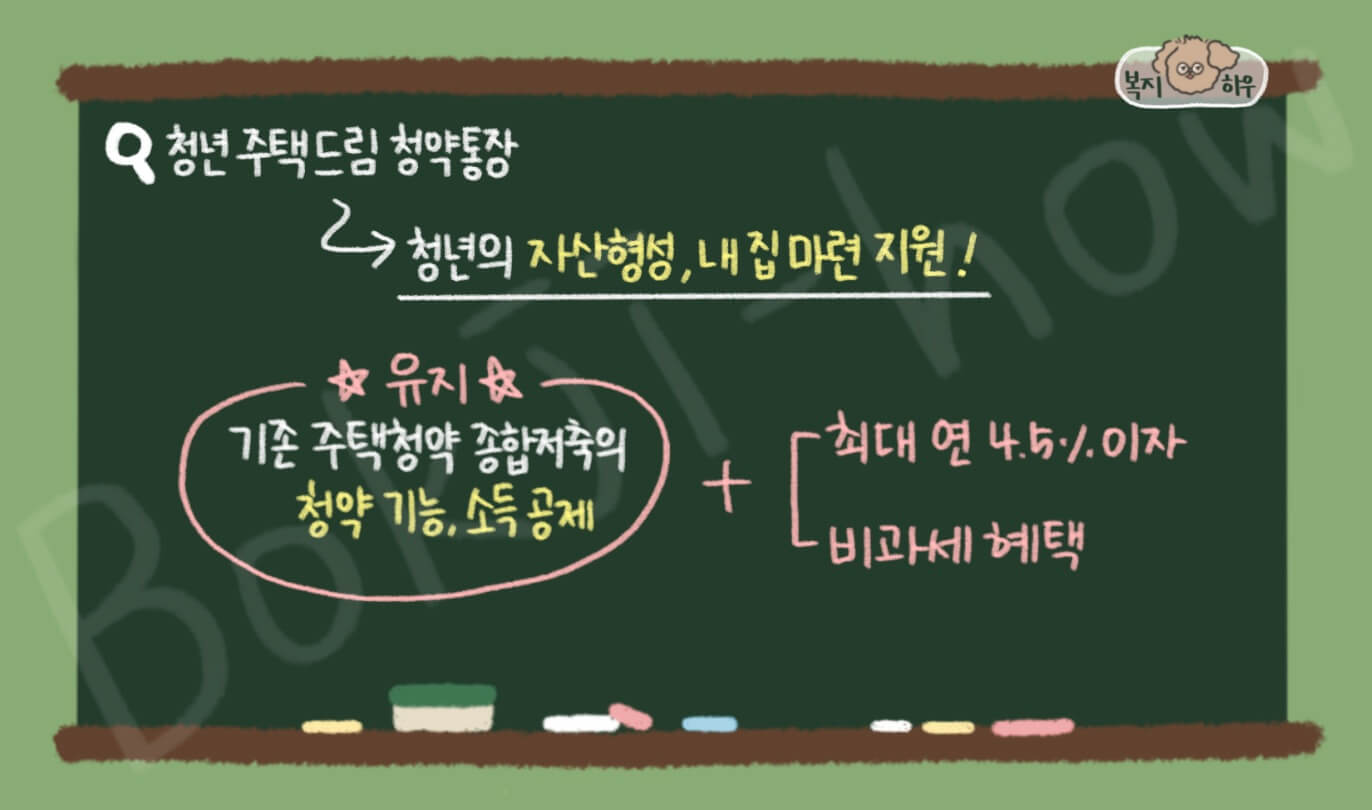 복지 하우
청년 주택드림 청약통장
청년의 자산형성, 내 집 마련 지원!
유지
기존 주택청약 종합저축의
청약 기능, 소득 공제
+
최대 연 4.5% 이자
비과세 혜택
Bokji-how